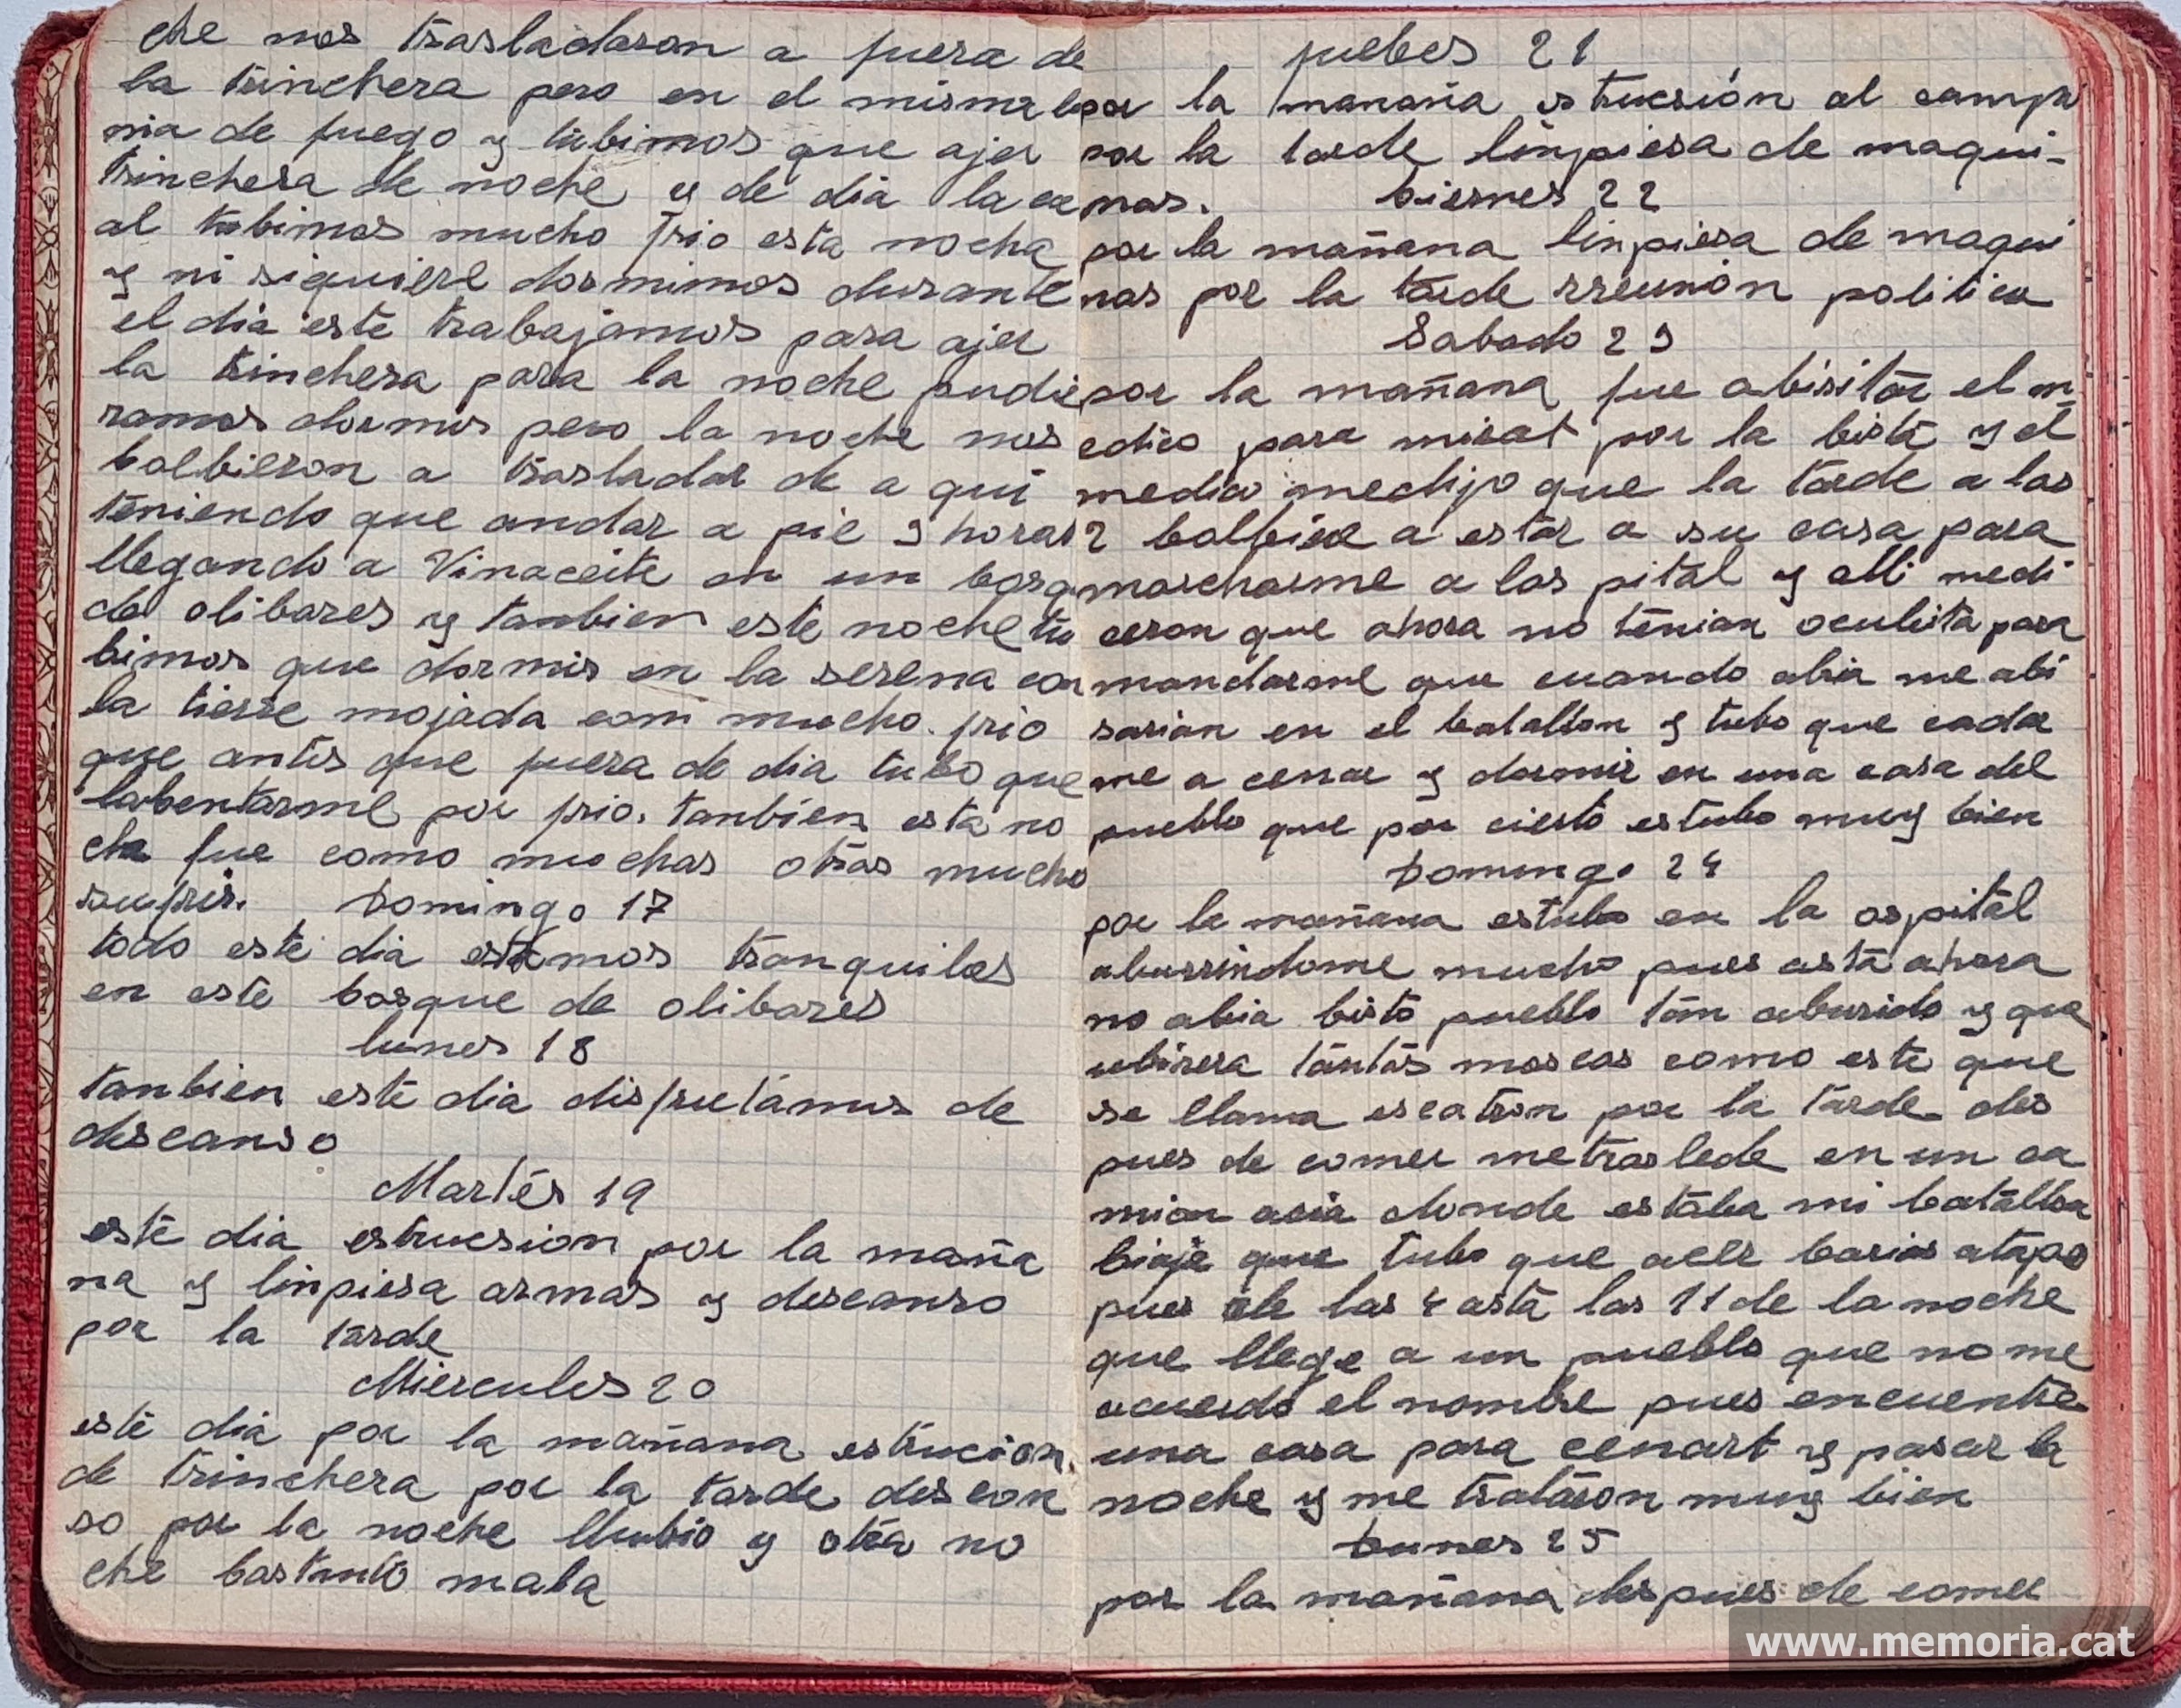 che nos trasladaron a fuera de
la trinchera pero en el misma lo
nia de fuego y tubimos que ajer
trinchera de noche y de dia la cu
al tubimos mucho frio esta nocha
y ni siquiere dormimos durante
el dia este trabajamos para ajer
la trinchera para la noche pudie
ramos dormir pero la noche nos
bolbieron a trasladar de a qui
teniendo que andar a pie 3 horas
llegando a Vinaceite en un bosq
de olibares y tanbien este noche tu
bimos que dormir en la serena con
la tierre mojada com mucho frio
que antes que fuera de dia tubo que
labentarme por frio. tanbien esta no
che fue como muchas otras mucho
sufrir. Domingo 17
todo este dia estamos tranquilos
en este bosque de olibares
lunes 18
tanbien este dia disfrutámus de
descanso
Martes 19
este dia estrucsion por la maña
na y linpiesa armas y descanso
por la tarde
Miercules 20
este dia por la mañana estrucion
de trinchera por la tarde descan
so por la noche llubio y otra no
che bastante mala
juebes 21
por la manaña estrucsión al campo
por la tarde linpiesa de maqui-
nas. biernes 22
por la mañana linpiesa de maqui
nas por la tarde rreunión politica
Sabado 23
por la mañana fue abisitar el m
edico para mirar por la bista y el
medico medijo que la tarde a las
2 bolbiera a estar a su casa para
marcharme a los pital y alli medi
ceron que ahora no tenian oculista para
mandarme que cuando abia me abi
sarian en el batallon y tubo que cadar
me a cenar y dormir en una casa del
pueblo que por cierto estubo muy bien
Domingo 24
por la mañana estubo en la ospital
aburrindome mucho pues asta ahora
no abia bisto pueblo tan aburido y que
ubirera tantas moscas como este que
se llama escatron por la tarde des
pues de comer metraslede en un ca
mion acia donde estaba mi batallon
biaje que tubo que acer barias atapas
pues de las 4 asta las 11 de la noche
que llege a un pueblo que no me
acuerdo el nombre pues encuentre
una casa para cenart y pasar la
noche y me trataron muy bien
Lunes 25
por la mañana despues de comer
www.memoria.cat